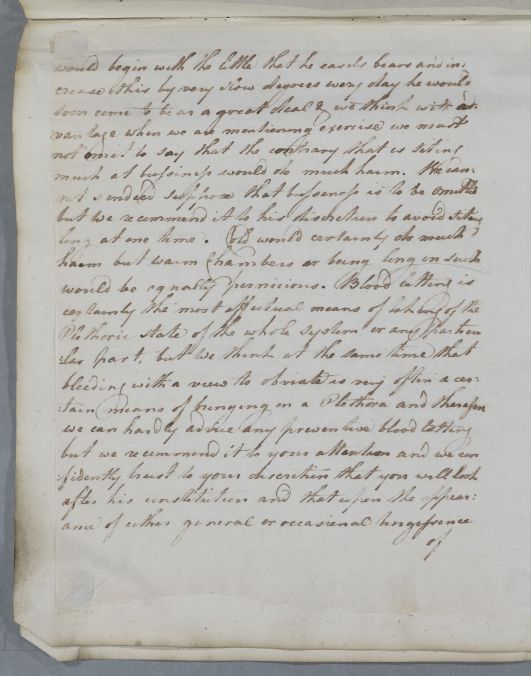 would begin with the little that he easily bears and in:
crease this by very slow degrees every day he would
soon come to bear a great deal & we think with ad:
vantage when we are mentioning exercise we must
not omit to say that the contrary that is sitting
much at bussiness would do much harm. We can:
not indeed suppose that bussness is to be omitted
but we recommend it to his discretion to avoid sitting
long at one time. Cold would certainly do much
harm but warm Chambers or being long in such
would be equally pernicious. Blood letting is
certainly the most effectual means of taking of the
Plethoric state of the whole system or any particu
:lar part, but we think at the same time that
bleeding with a view to obviate is very often a cer:
:tain means of bringing on a Plethora and therefore
we can hardly advise any preventive blood letting
but we recommend it to your attention and we con
:fidently trust to your discretion that you will look
after his constitution and that upon the appear:
ance of either general or occasional turgescence
of